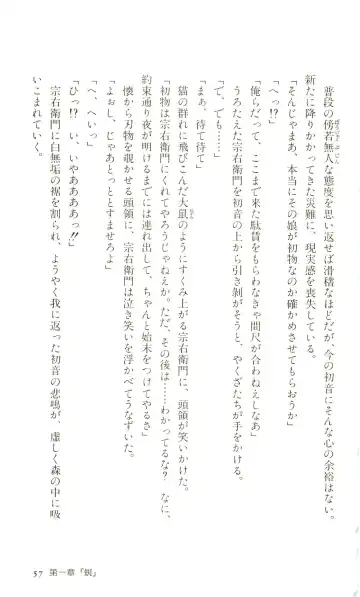 普段の傍若無人な態度を思い返せば滑稽なほどだが、今の初音にそんな心の余裕はない。
新たに降りかかってきた災難に、現実感を喪失している。
「そんじゃまあ、本当にその娘が初物なのか確かめさせてもらおうか」
「へっ!?や
「俺らだって、ここまで来た駄賃をもらわなきゃ間尺が合わねえしなあ」
うろたえた宗右衛門を初音の上から引き剥がそうと、やくざたちが手をかける。
「で、でも……」
「まぁ、待て待て」
猫の群れに飛びこんだ大鼠のようにすくみ上がる宗右衛門に、頭領が笑いかけた。
「初物は宗右衛門にくれてやろうじゃねぇか。ただ、その後は……わかってるな? なに、
約束通り夜が明けるまでには連れ出して、ちゃんと始末をつけてやるさ」
懐から刃物を覗かせる頭領に、宗右衛門は泣き笑いを浮かべてうなずいた。
「よぉし、じゃあとっととすませろよ」
「へ、へいっ」
「ひっ!? い、いやああああっ!!」
宗右衛門に白無垢の裾を割られ、ようやく我に返った初音の悲鳴が、虚しく森の中に吸
いこまれていく。
57 第一章『蜈』